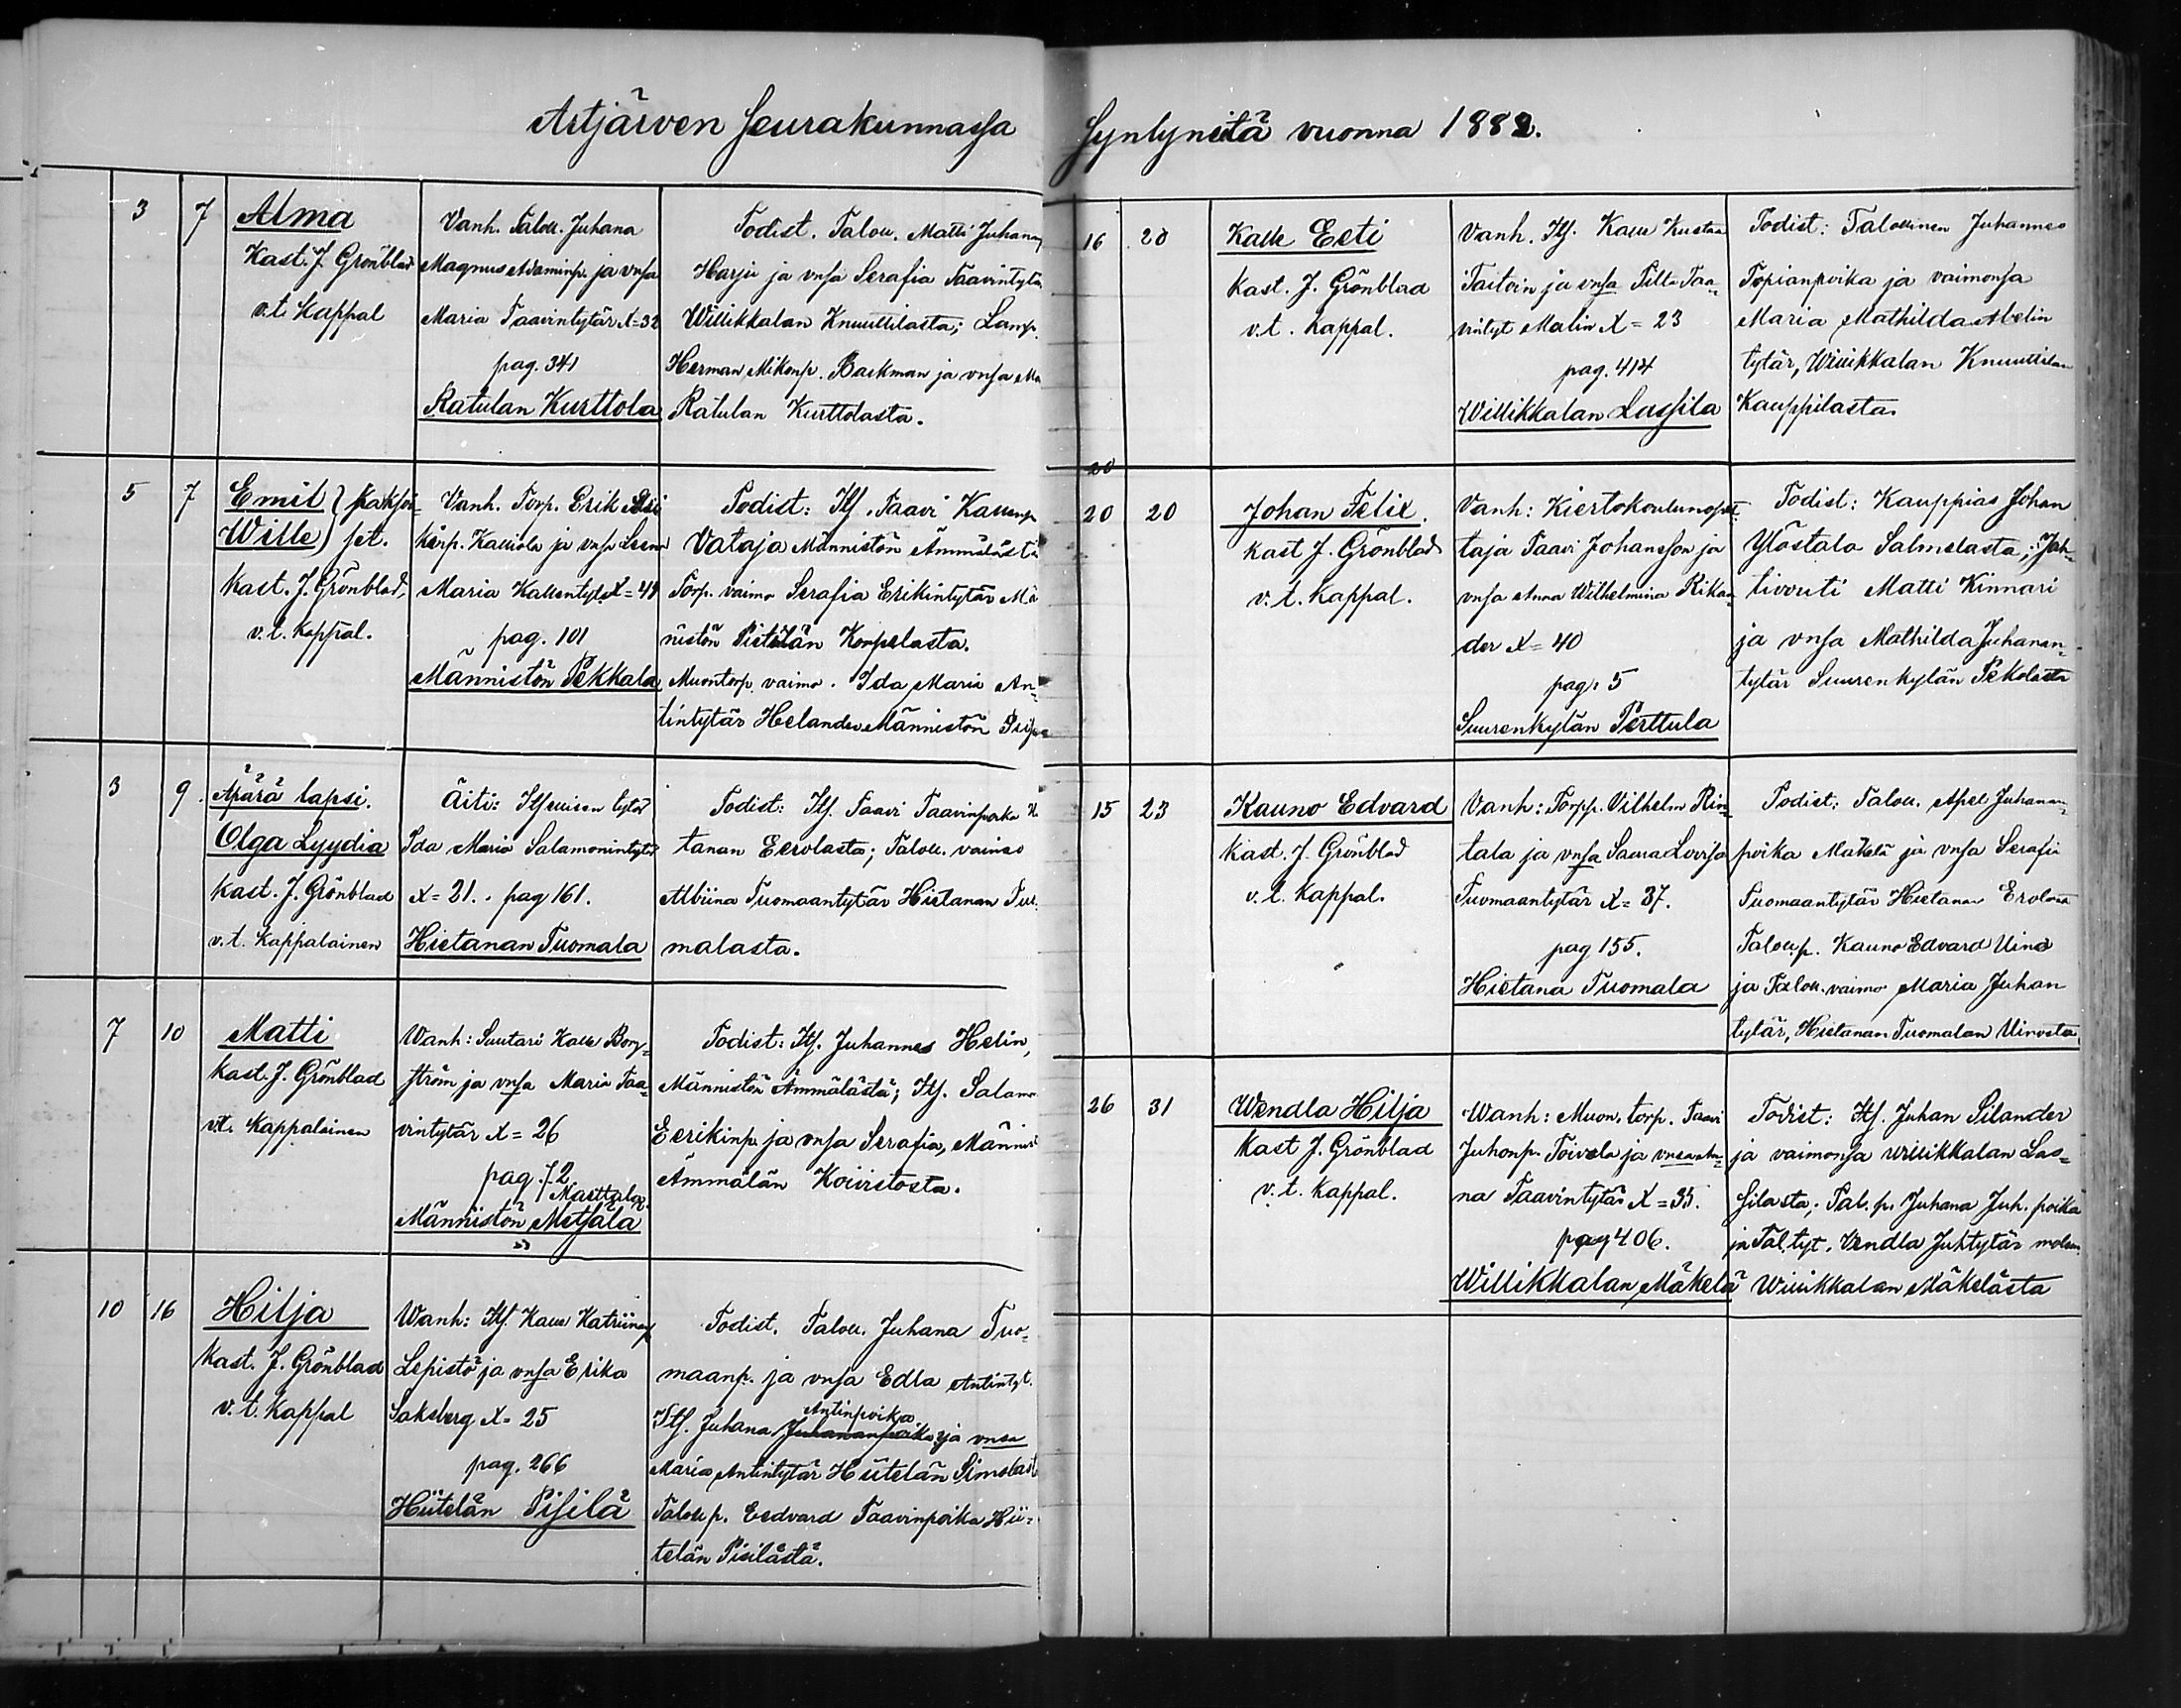 Artjärven Seurakunnassa
3 7 Alma
Kast. J. Grönblad
v.t. Kappal
Vanh. Talou. Juhana
Magnus Adaminp. ja vnsa
Maria Taavintytär X=32
pag. 341
Ratulan Kurttola
Todist. Talou. Matti Juhanap
Harju ja vnsa Serafia Taavintytär
Willikkalan Knuutilasta; Lamp.
Herman Mikonp. Backman ja vnsa Ma
Ratulan Kurttolasta.
5 7 Emil } kaksoi-
Wille } set.
Kast. J. Grönblad,
v.t. Kappal.
Vanh. Torp. Erik
Kalliola ja vnsa Leena
Maria Kallentytär X=44
pag. 101
Männistön Pekkala
Todist: Its. Taavi Kallenp
Vataja Männistön Ämmälästä
Torp. vaimo Serafia Erikintytär Mä
nistön Pistilän Korpelasta.
Muontorp. vaimo. Ida Maria An-
tintytär Helander Männistön
3 9. Äpärä lapsi.
Olga Lyydia
Kast. J. Grönblad
v.t. Kappalainen
Äiti: Itsellisen tytär
Ida Maria Salamonintytär
X=21. pag 161.
Hietanan Tuomala
Todist: Its. Taavi Taavinpoika Hi
tanan Eerolasta; Talou. vaimo
Albiina Tuomaantytär Hietanan Tuo
malasta.
7 10 Matti
Kast. J. Grönblad
v.t. Kappalainen
Wanh: Suutari Kalle Borg-
ström ja vnsa Maria Taa-
vintytär X=26
pag. 72
Mattala
Männistön Metsälä
Todist: Its. Juhannes Helin,
Männistön Ämmälästä; Its. Salamo
Eerikinp. ja vnsa Serafia, Männist
Ämmälän Koivistosta.
10 16 Hilja
Kast. J. Grönblad
v.t. Kappal
Wanh: Its. Kalle Katriinanp
Lepistö ja vnsa Erika
Saksberg X=25
pag. 266
Hiitelän Pisilä
Todist. Talou. Juhana Tuo-
maanp. ja vnsa Edla Antintyt.
Antinpoika
Its. Juhana Juhananpoika ja vnsa
Maria Antintytär Hiitelän Simolast
Talou p. Eedvard Taavinpoika Hii-
telän Pisilästä.
Syntyneitä vuonna 1882.
16 20 Kalle Eeti
Kast. J. Grönblad
v.t. Kappal.
Vanh. Itj. Kalle Kustaa
Taitoin ja vnsa Tilta Taa-
vintyt Malin X=23
pag. 414
Willikkalan Lassila
Todist: Talollinen Juhannes
Topianpoika ja vaimonsa
Maria Mathilda Abelin
tytär, Willikkalan Knuuttilan
Kauppilasta.
20
20 20 Johan Felix.
Kast J. Grönblad
v.t. Kappal.
Vanh: Kiertokoulunopet-
taja Taavi Johansson ja
vnsa Anna Wilhelmina Rikan-
der X=40
pag. 5
Suurenkylän Perttula
Todist: Kauppias Johan
Ylöstalo Salmelasta; Jah-
tivouti Matti Kinnari
ja vnsa Mathilda Juhanan-
tytär Suurenkylän Pekolasta
15 23 Kauno Edvard
Kast. J. Grönblad
v.t. Kappal.
Vanh: Torpp. Vilhelm Rin-
tala ja vnsa Saara Lovisa
Tuomaantytär X=37.
pag 155.
Hietana Tuomala
Todist: Talou. Apel Juhanan-
poika Mäkelä ja vnsa Serafia
Tuomaantytär Hietanan Erolasta
Talou p. Kauno Edvard Uino
ja Talou. vaimo Maria Juhan
tytär, Hietanan Tuomalan Uinosta
26 31 Wendla Hilja
Kast J. Grönblad
v.t. Kappal.
Wanh: Muon. torp. Taavi
Juhonp. Toivola ja vnsa An-
na Taavintytär X=35.
pag 406.
Willikkalan Mäkelä
Todist: Its. Juhan Silander
ja vaimonsa Willikkalan Las-
silasta. Tal. p. Juhana Juh. poika
ja Tal. tyt. Vendla Juhtytär molem.
Willikkalan Mäkelästä